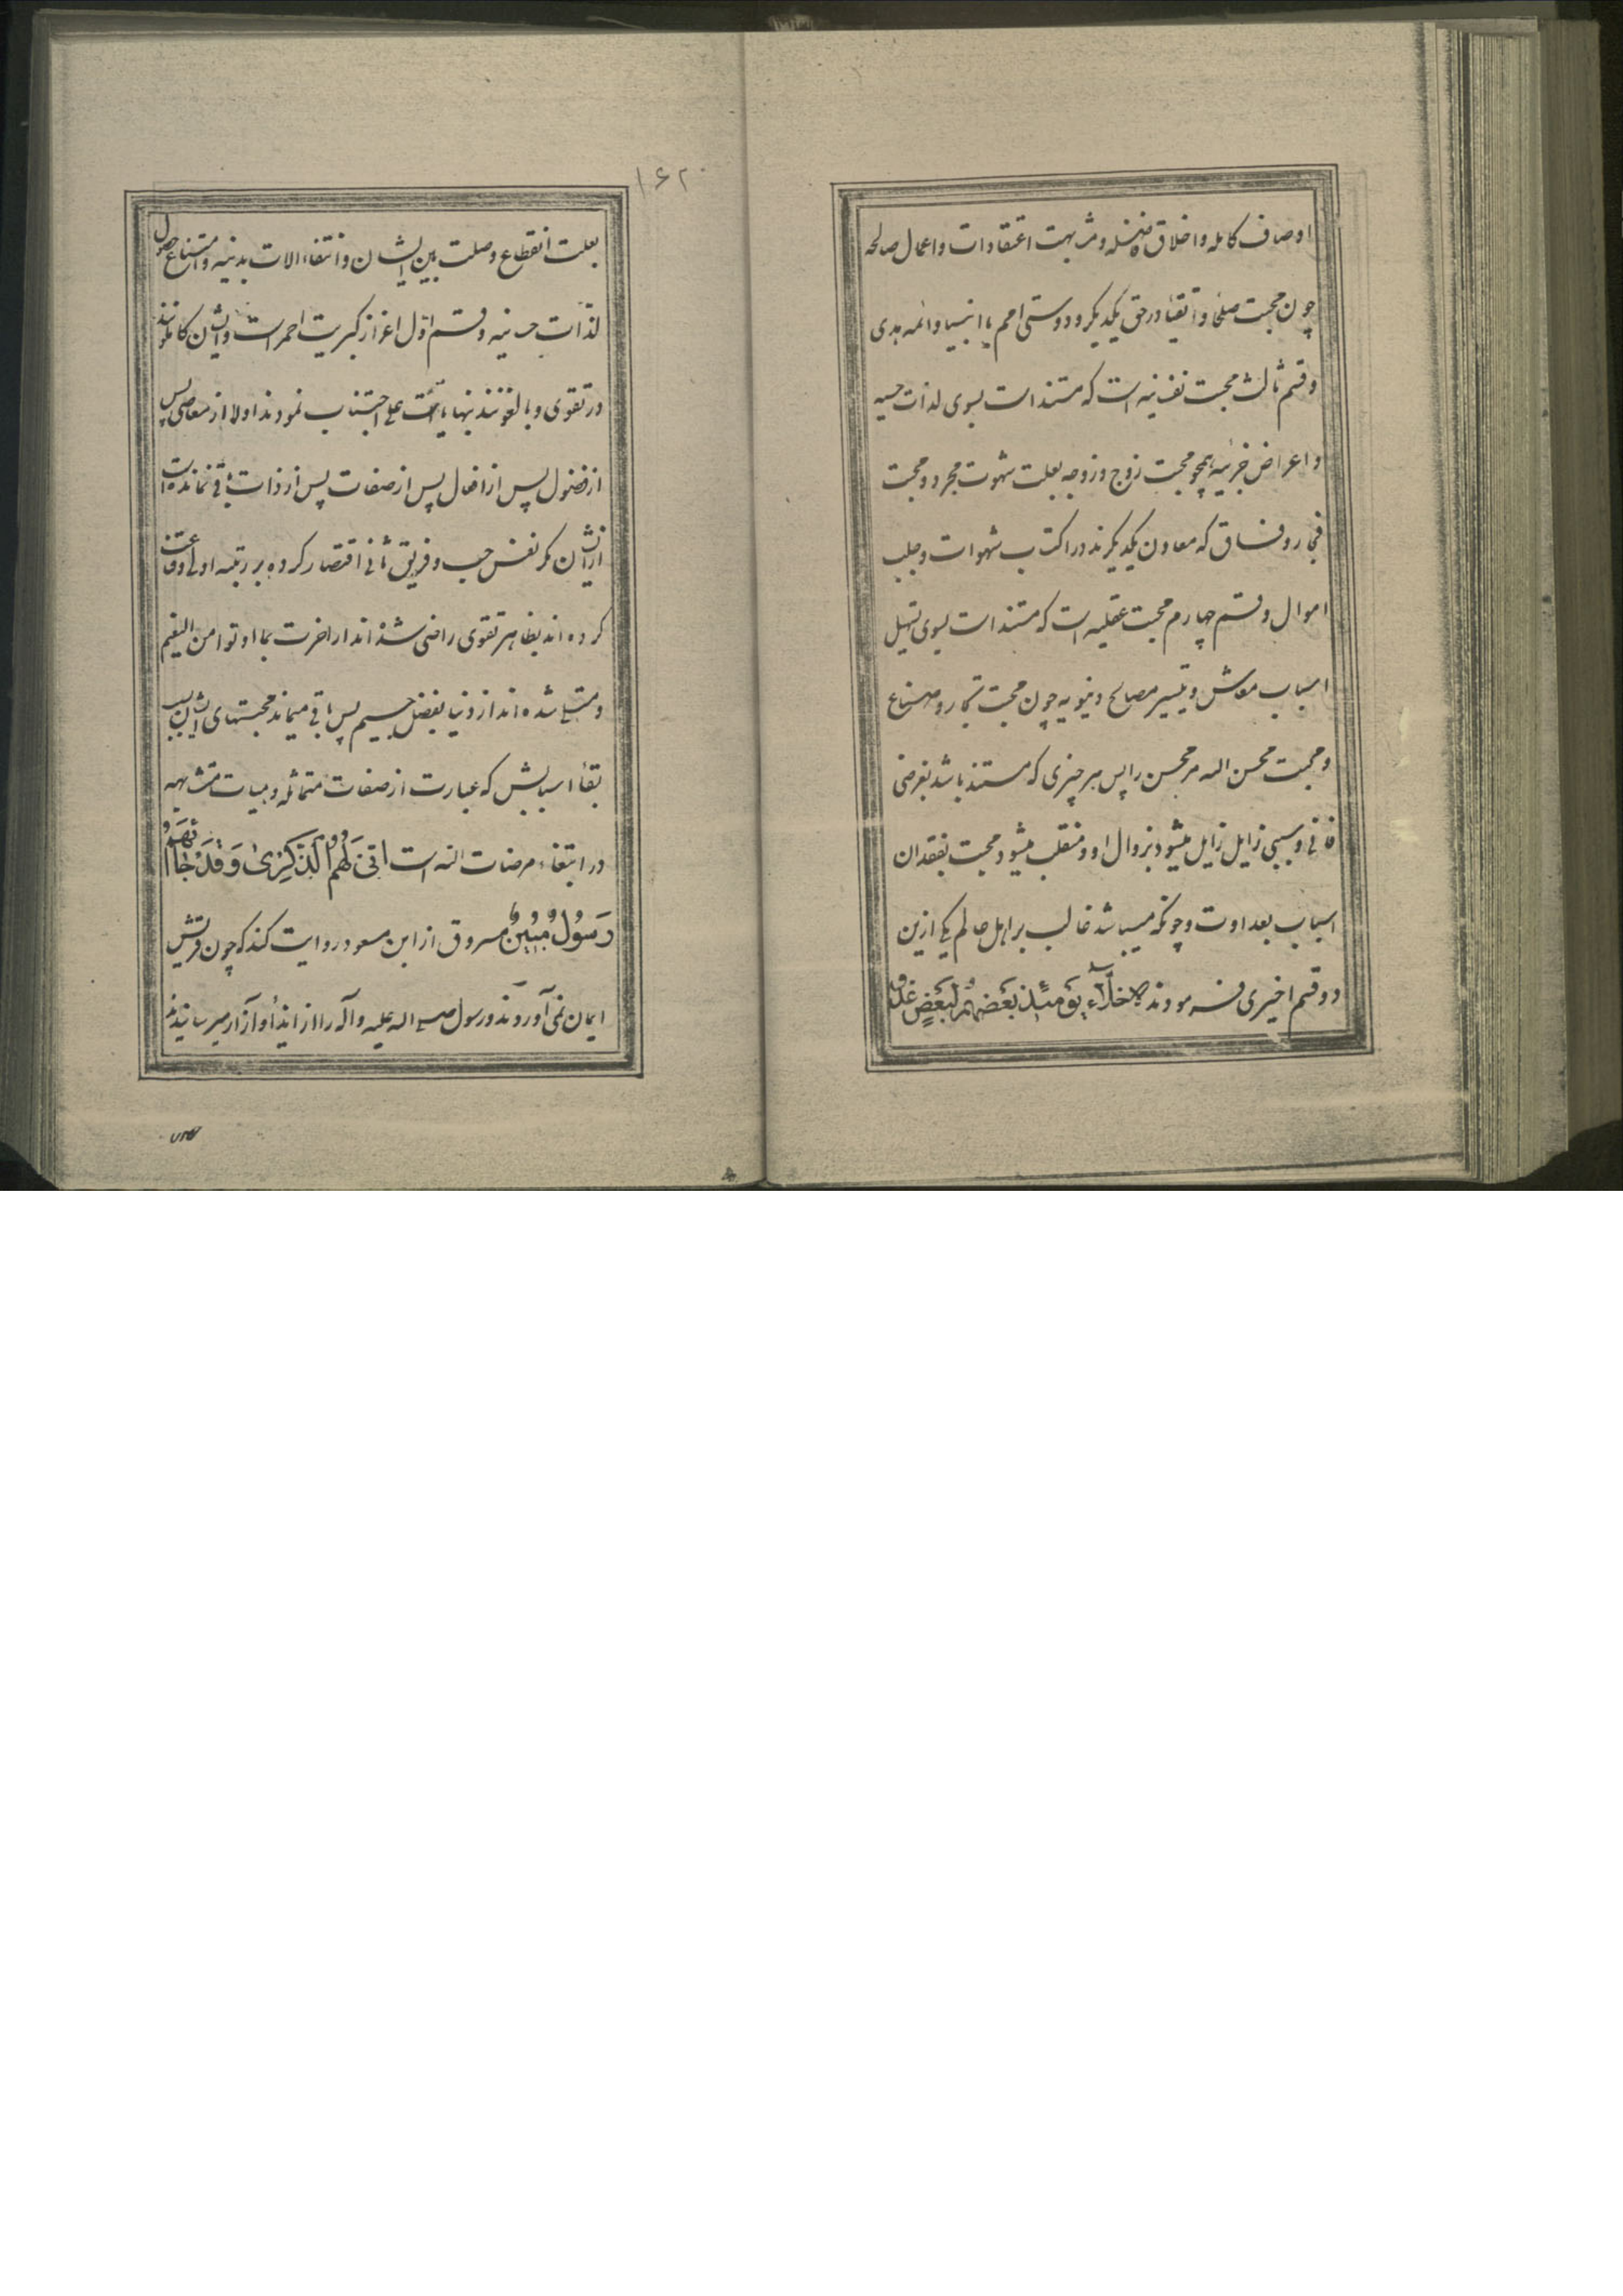 اوصاف کامله و اخلاق فاضله و مشابهت اعتقادات و اعمال صالحه
چون محبت صلحا و اتقیا در حق یکدیگر و دوستی امم با انبیا و ائمه هدی
و قسم ثالث محبت نفسانیه است که مستند است بسوی لذات حسیه
و اعراض جزئیه همچو محبت زوج و زوجه بعلت شهوت مجرد و محبت
فجار و فساق که معاون یکدیگرند در اکتساب شهوات و جلب
اموال و قسم چهارم محبت عقلیه است که مستند است بسوی تسهیل
اسباب معاش و تیسیر مصالح دنیویه چون محبت تجار و صناع
و محبت محسن الیه مر محسن را پس هر چیزی که مستند باشد بغرضی
فانی و سببی زایل زایل میشود بزوال او و منقلب میشود محبت بفقدان
اسباب بعداوت و چونکه میباشد غالب بر اهل عالم یکی ازین
دو قسم اخیری فرمودند الاخلاء یومئذ بعضهم لبعض عدو
۱۶۲۰
بعلت انقطاع وصلت بین ایشان و انتفاء الات بدنیه و امتناع حصول
لذات حسیه و قسم اول اعز از کبریت احمر است و ایشان کاملونند
در تقوی و بالغونند بنهایات علی اجتناب نمودند اولا از معاصی پس
از فضول پس از افعال پس از صفات پس از ذات باقی نمانده است
ازیشان مکر نفس حب و فریق ثانی اقتصار کرده بر رتبه اولی و قناعت
کرده اند بظاهر تقوی راضی شده اند از اخرت بما اوتوا من النعیم
و متسلی شده اند از دنیا بفضل جسیم پس باقی میماند محبتهای ایشان بسبب
بقاء اسبابش که عبارت از صفات متماثله و هیات متشابهه
در ابتغاء مرضات الله است انی لهم الذکری و قد جاءهم
رسول مبین مسروق از ابن مسعود روایت کند که چون قریش
ایمان نمی آوردند و رسول صلی الله علیه و آله را از ایذا و آزار میرسانیدند